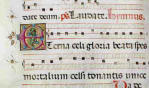 Laudate. hymnus.
Eterna celi gloria beata spes
mortalium celsi tonantis unice